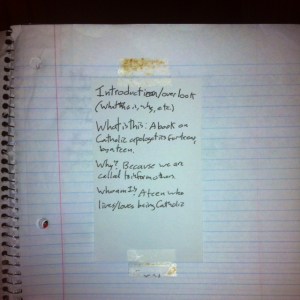 Introduction/overlook
(what this is, why, etc.)
What is this: A book on
Catholic apologetics for teens,
by a teen.
Why? Because we are
called to inform others.
Who am I? A teen who
lives/loves being Catholic